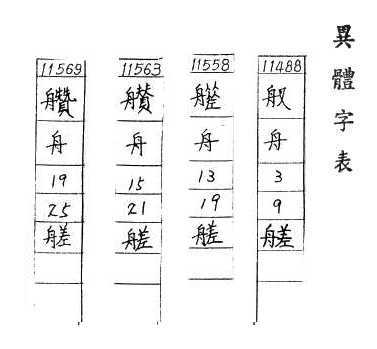 異體字表
11488
舟
3
9
艖
11558
舟
13
19
艖
11563
舟
15
21
艖
11569
舟
19
25
艖